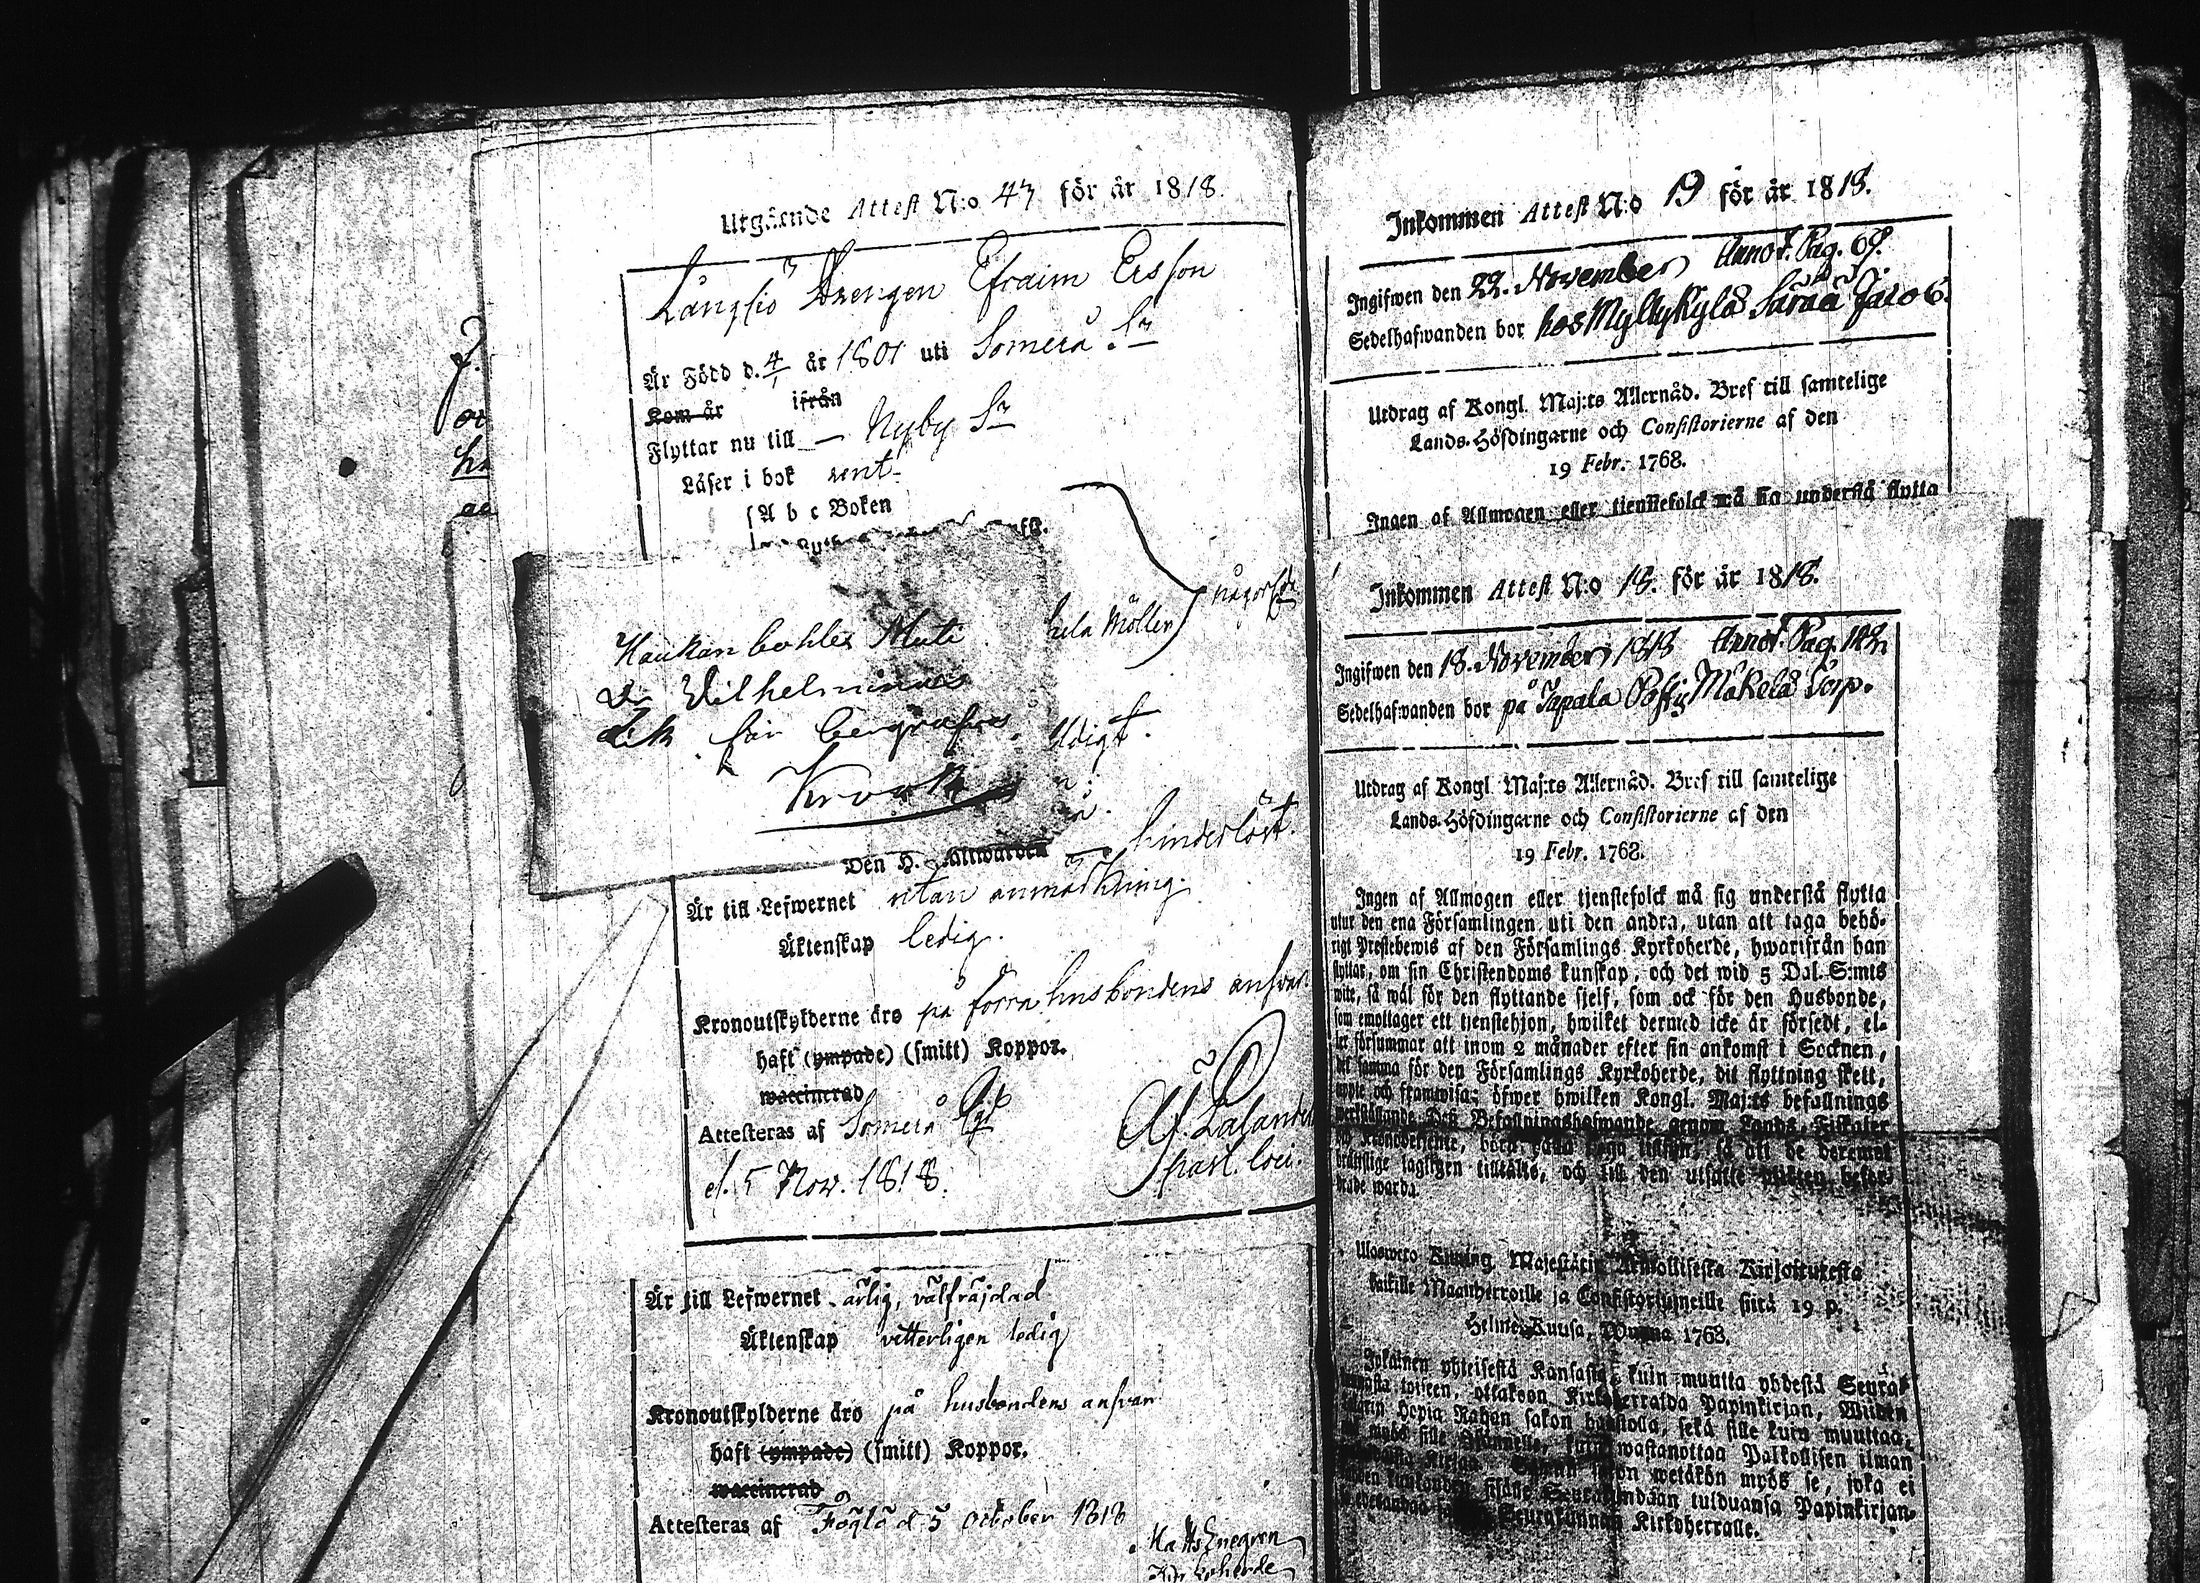 Utgående Attest N:o 47 för år 1818.
Långsjö Drengen Efraim Ersson
Är Född d. 4/1 år 1801 uti Somero Sn
Kom år ifrån
Flyttar nu till — Nyby Sn
Läser i bok rent
A b c Boken
hela Möller någorl
ldigt.
Haukan bohles Muti
Wilhelminas
Lik får begrafvas.
Krook
Den H. Nattwarden hinderlöst.
Är till Lefwernet utan anmärkning.
Äktenskap ledig.
Kronoutskylderne äro på förra husbondens answar
haft (ympade) (smitt) Koppor.
waccinerad
Attesteras af Somero
d. 5 Nov. 1818.
Lalande
past. loci.
Är till Lefwernet ärlig, välfräjdad
Äktenskap vitterligen ledig
Kronoutskylderne äro på husbondens answar
haft (ympade) (smitt) Koppor.
waccinerad
Attesteras af Föglö d. 5 october 1818
Matts Enegren
Kyrkoherde
Inkommen Attest N:o 19 för år 1818.
Ingifwen den 22. November Annot. Pag. 69.
Sedelhafwanden bor hos Myllykylä Jacob.
Utdrag af Kongl. Maj:ts Allernåd. Bref till samtelige
Lands-Höfdingarne och Consistorierne af den
19 Febr. 1768.
Ingen af Allmogen eller tjenstefolck må sig understå flytta
Inkommen Attest N:o 18. för år 1818.
Ingifwen den 18. November 1818 Annot. Pag.
Sedelhafwanden bor på Mäkelä Torp.
Utdrag af Kongl. Maj:ts Allernåd. Bref till samtelige
Lands-Höfdingarne och Consistorierne af den
19 Febr. 1768.
Ingen af Allmogen eller tjenstefolck må sig understå flytta
utur den ena Församlingen uti den andra, utan att taga behö-
rigt Prestebewis af den Församlings Kyrkoherde, hwarifrån han
flyttar, om sin Christendoms kunskap, och det wid 5 Dal. S:mts
wite, så wäl för den flyttande sjelf, som ock för den Husbonde,
som emottager ett tjenstehjon, hwilket dermed icke är försedt, el-
ler försummar att inom 2 månader efter sin ankomst i Socknen,
det samma för den Församlings Kyrkoherde, dit flyttning skett,
upte och framwisa; öfwer hwilken Kongl. Maj:ts befallnings
werkställande Deß Befallningshafwande genom Lands-Fiskaler
och Kronobetjente, böra noga tillsyn, så att de deremot
brättslige lagligen tilltalas, och till den utsatte plikten befor-
drade warda.
Uloswето Kuning. Majestätin Armollisesta Kirjoituxesta
kaikille Maanherroille ja Consistoriumeille siitä 19 p.
Helme-Kuusa, Wuonna 1768.
Jokainen yhteisestä Kansasta, kuin muutta yhdestä Seura-
kunnasta toiseen, ottakoon Kirkkoherralda Papinkirjan, Wiiden
talarin Hopia Rahan sakon haastolla, sekä sille kuin muuttaa,
että myös sille Isännälle, kuin wastanottaa Palkollisen ilman
wetäkön myös se, joka ei
sisälle Seurakundaan tulduansa Papinkirjan-
Seurakunnan Kirkoherralle.